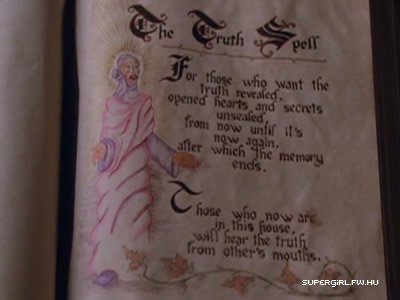 The Truth Spell
For those who want the
truth revealed,
opened hearts and secrets
unsealed,
from now until it's
now again,
after which the memory
ends.
Those who now are
in this house,
will hear the truth
from other's mouths.
SUPERGIRL.FW.HU